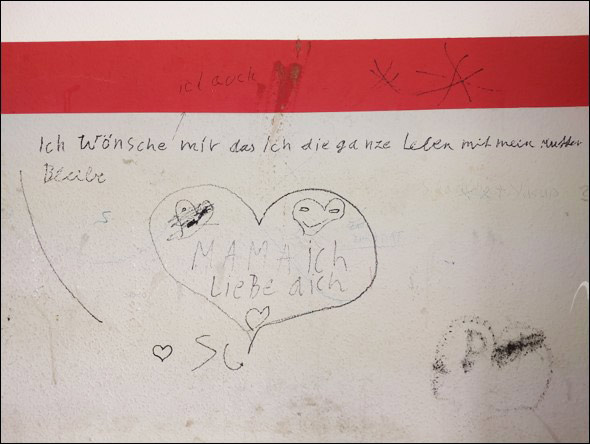 ich auch
Ich Wönsche mir das Ich die ganze Leben mit mein Mutter
Bleibe
MAMA ich
LieBe dich
SC
P